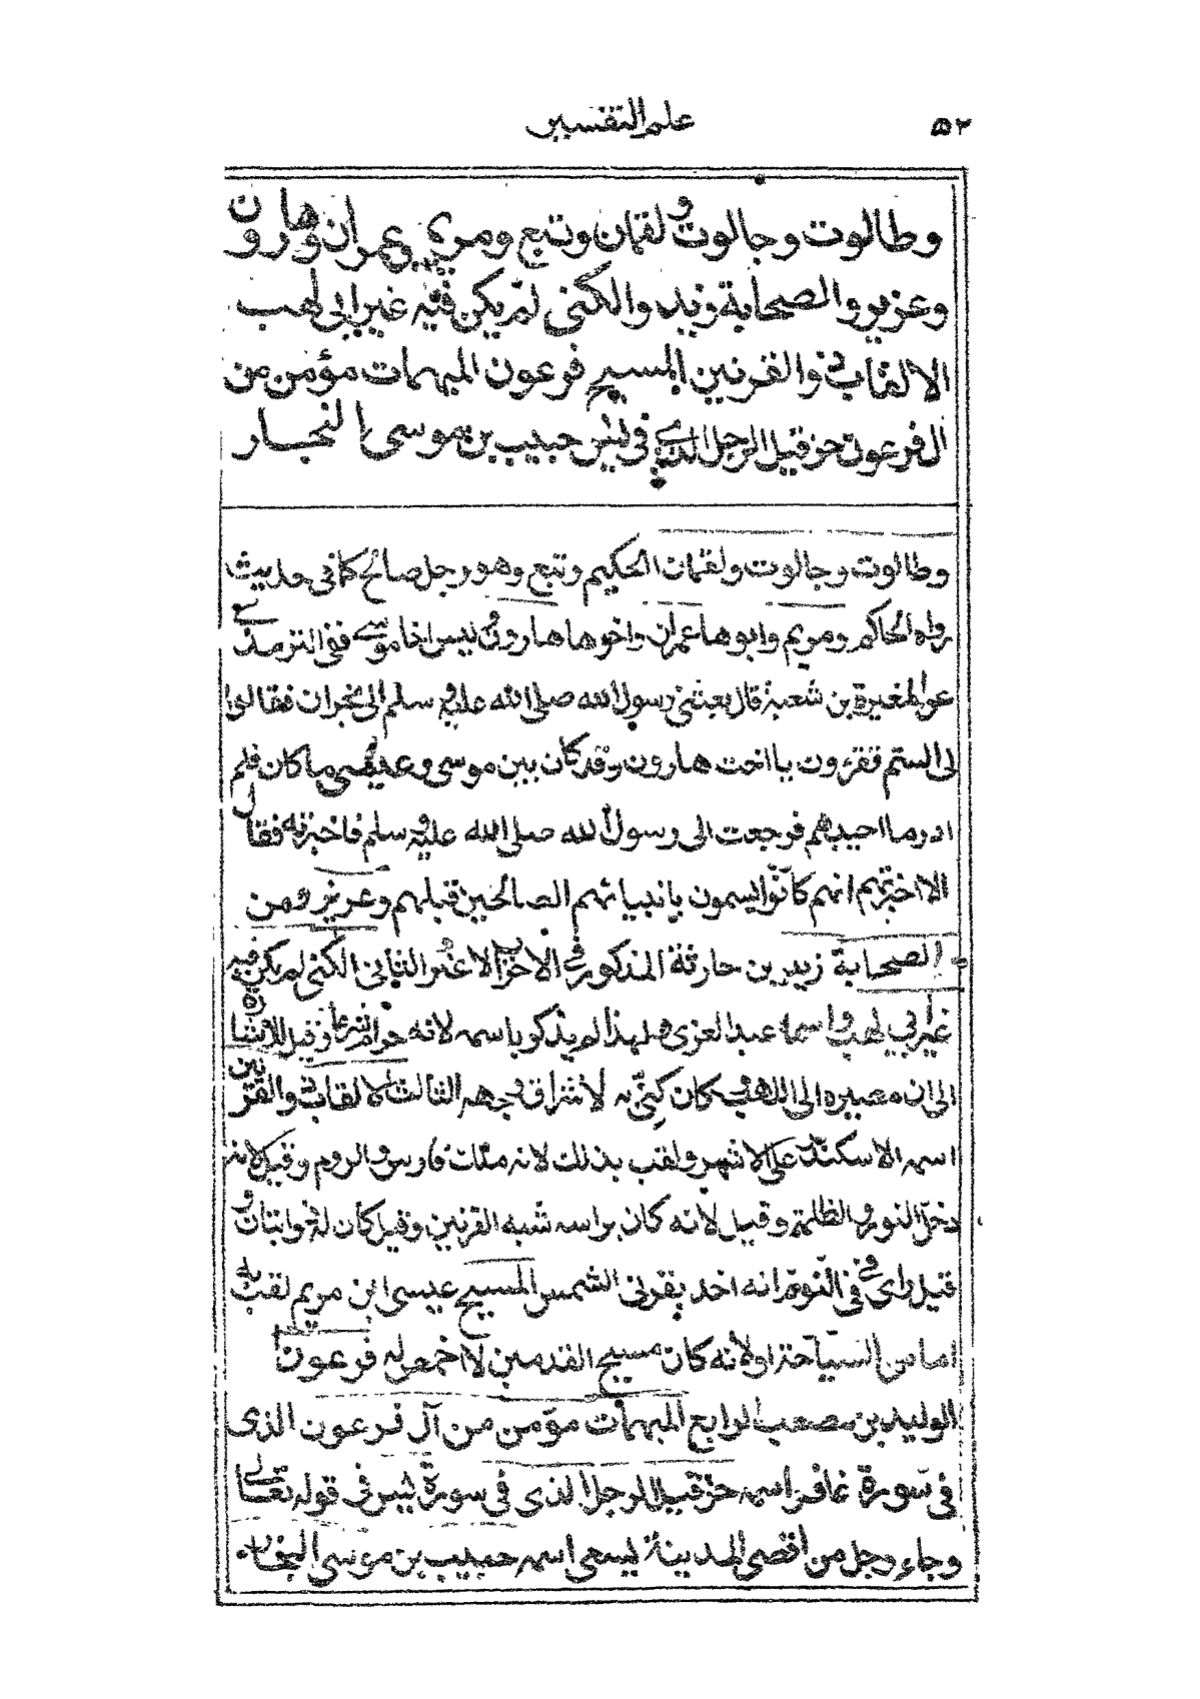 ٥٢ علم التفسير
وطالوت وجالوت ولقمان وتبع ومريم وعمران وهارون
وعزير والصحابة زيد والكنى لم يكن فيه غير ابي لهب
الالقاب ذو القرنين المسيح فرعون المبهمات مؤمن من
ال فرعون حزقيل الرجل الذي في يٰس حبيب بن موسى النجار
وطالوت وجالوت ولقمان الحكيم وتبع وهو رجل صالح كما في حديث
رواه الحاكم ومريم وابوها عمران واخوها هارون ليس اخا موسى ففي الترمذي
عن المغيرة بن شعبة قال بعثني رسول الله صلى الله عليه وسلم الى نجران فقالوا
لي الستم تقرءون يا اخت هارون وقد كان بين موسى وعيسى ما كان فلم
ادر ما اجيبهم فرجعت الى رسول الله صلى الله عليه وسلم فاخبرته فقال
الا اخبرتهم انهم كانوا يسمون بانبيائهم والصالحين قبلهم وعزير ومن
الصحابة زيد بن حارثة المذكور في الاحزاب لا غير الثاني الكنى لم يكن فيه
غير ابي لهب واسمه عبد العزى ولهذا لم يذكر باسمه لانه حرام شرعا وقيل للاشارة
الى ان مصيره الى اللهب وكان كني به لاشراق وجهه الثالث الالقاب ذو القرنين
اسمه الاسكندر على الاشهر ولقب بذلك لانه ملك فارس والروم وقيل لانه
دخل النور والظلمة وقيل لانه كان براسه شبه القرنين وقيل كان له ذوابتان و
قيل راى في النوم انه اخذ بقرني الشمس المسيح عيسى ابن مريم لقب به
اما من السياحة او لانه كان مسيح القدمين لا اخمص له فرعون
الوليد بن مصعب الرابع المبهمات مؤمن من آل فرعون الذى
في سورة غافر اسمه حزقيل الرجل الذى في سورة يٰس في قوله تعالى
وجاء رجل من اقصى المدينة يسعى اسمه حبيب بن موسى النجار